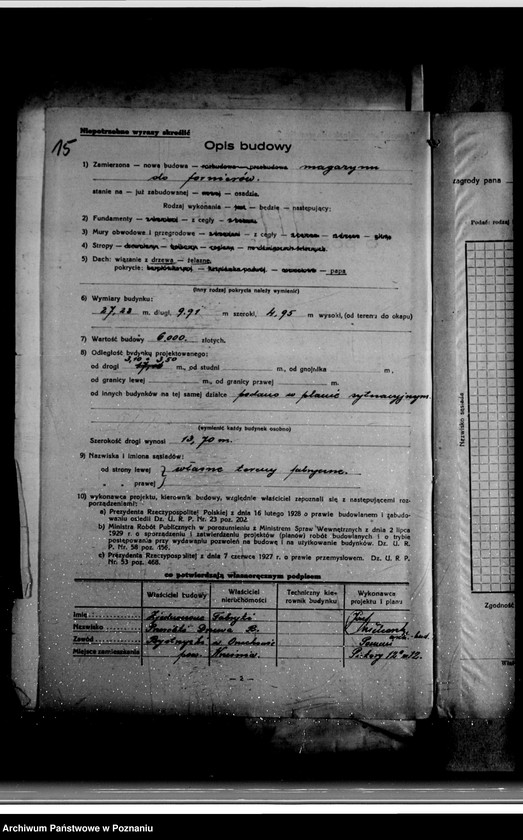 Niepotrzebne wyrazy skreślić
15
Opis budowy
1) Zamierzona — nowa budowa — rozbudowa — przebudowa magazynu
do fornierów.
stanie na — już zabudowanej — nowej — osadzie.
Rodzaj wykonania — jest — będzie — następujący:
2) Fundamenty — z cegły —
3) Mury obwodowe i przegrodowe — z cegły —
4) Stropy —
5) Dach: wiązanie z drzewa — żelazne,
pokrycie: — papa
(inny rodzaj pokrycia należy wymienić)
6) Wymiary budynku:
27,22 m. długi, 9.91 m szeroki, 4.95 m wysoki, (od terenu do okapu)
7) Wartość budowy 6.000. złotych.
8) Odległość budynku projektowanego:
od drogi 3,10 a 3,50 m., od studni m., od gnojnika m,
od granicy lewej m., od granicy prawej m.
od innych budynków na tej samej działce podano w planie sytuacyjnym.
(wymienić każdy budynek osobno)
Szerokość drogi wynosi 13,70 m.
9) Nazwiska i imiona sąsiadów:
od strony lewej } własne tereny fabryczne.
„ „ prawej }
10) wykonawca projektu, kierownik budowy, względnie właściciel zapoznali się z następującemi roz-
porządzeniami:
a) Prezydenta Rzeczypospolitej Polskiej z dnia 16 lutego 1928 o prawie budowlanem i zabudo-
waniu osiedli Dz. U. R. P. Nr. 23 poz. 202.
b) Ministra Robót Publicznych w porozumieniu z Ministrem Spraw Wewnętrznych z dnia 2 lipca
1929 r. o sporządzeniu i zatwierdzeniu projektów (planów) robót budowlanych i o trybie
postępowania przy wydawaniu pozwoleń na budowę i na użytkowanie budynków. Dz. U. R.
P. Nr. 58 poz. 456.
c) Prezydenta Rzeczypospolitej z dnia 7 czerwca 1927 o prawie przemysłowem. Dz. U. R. P.
Nr. 53 poz. 468.
co potwierdzają własnoręcznym podpisem
Właściciel budowy
Właściciel nieruchomości
Techniczny kie-
rownik budynku
Wykonawca
projektu i planu
Imię Zjednoczone Fabryki Józef
Nazwisko Drzewa
Zawód w
Miejsce zamieszkania pow. Września. 12.
— 2 —
zagrody pana
Podać: rodzaj
Nazwisko sąsiada
Zgodność
Archiwum Państwowe w Poznaniu